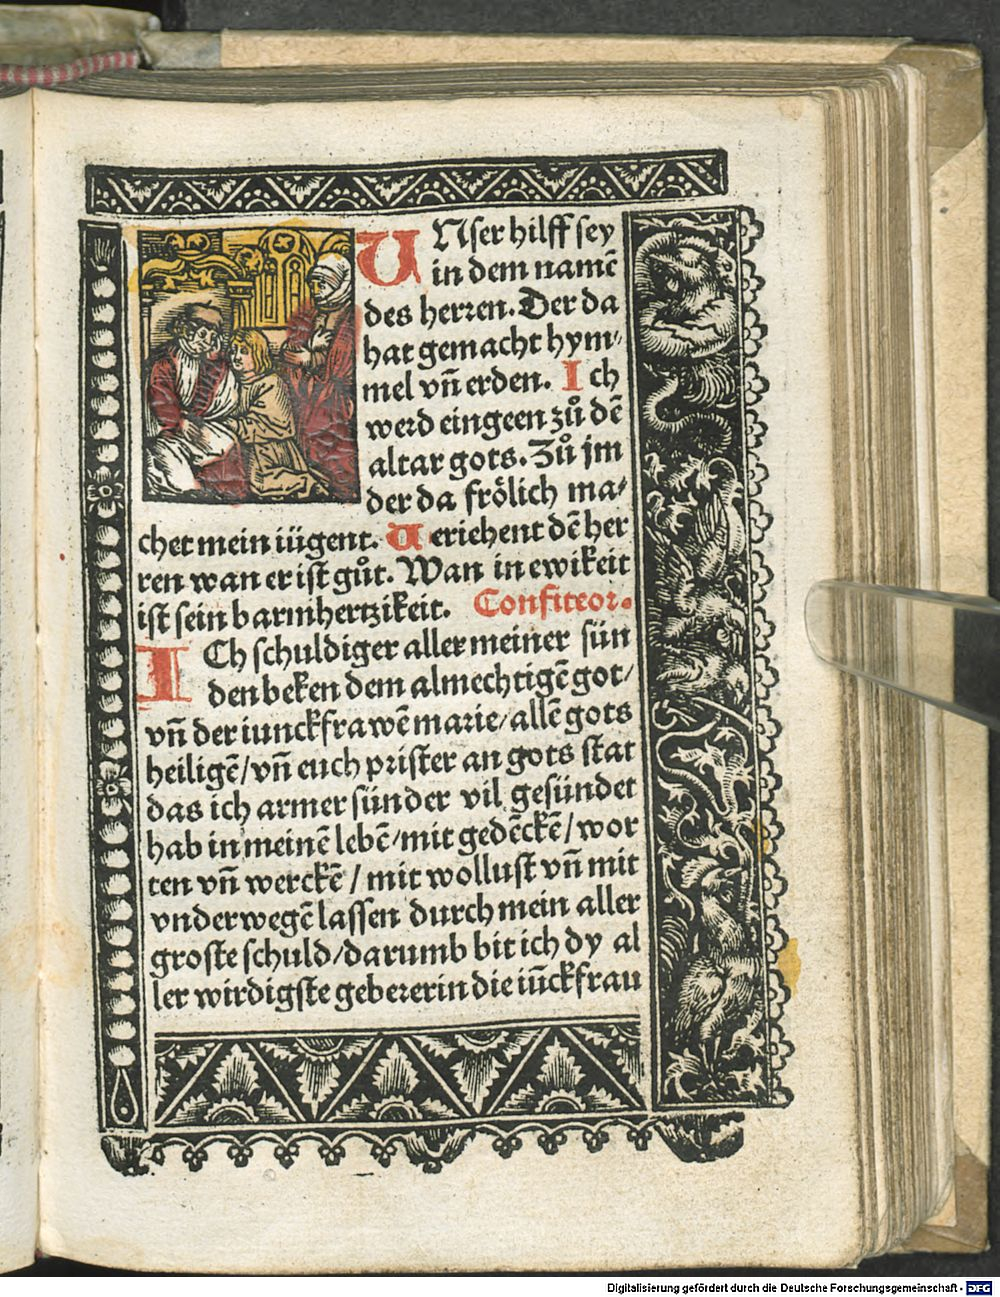 UNser hilff sey
in dem namē
des herren. Der da
hat gemacht hym⸗
mel vñ erden. Ich
werd eingeen zů dē
altar gots. Zů jm
der da frölich ma⸗
chet mein iügent. Veriehent dē her
ren wan er ist gůt. Wan in ewikeit
ist sein barmhertzikeit. Confiteor.
ICh schuldiger aller meiner sün
den beken dem almechtigē got/
vñ der iunckfrawē marie/allē gots
heiligē/vñ euch prister an gots stat
das ich armer sünder vil gesündet
hab in meinē lebē/mit gedēckē/wor
ten vñ werckē/mit wollust vñ mit
vnderwegē lassen durch mein aller
groste schuld/darumb bit ich dy al
ler wirdigste gebererin die iūckfrau
Digitalisierung gefördert durch die Deutsche Forschungsgemeinschaft - DFG